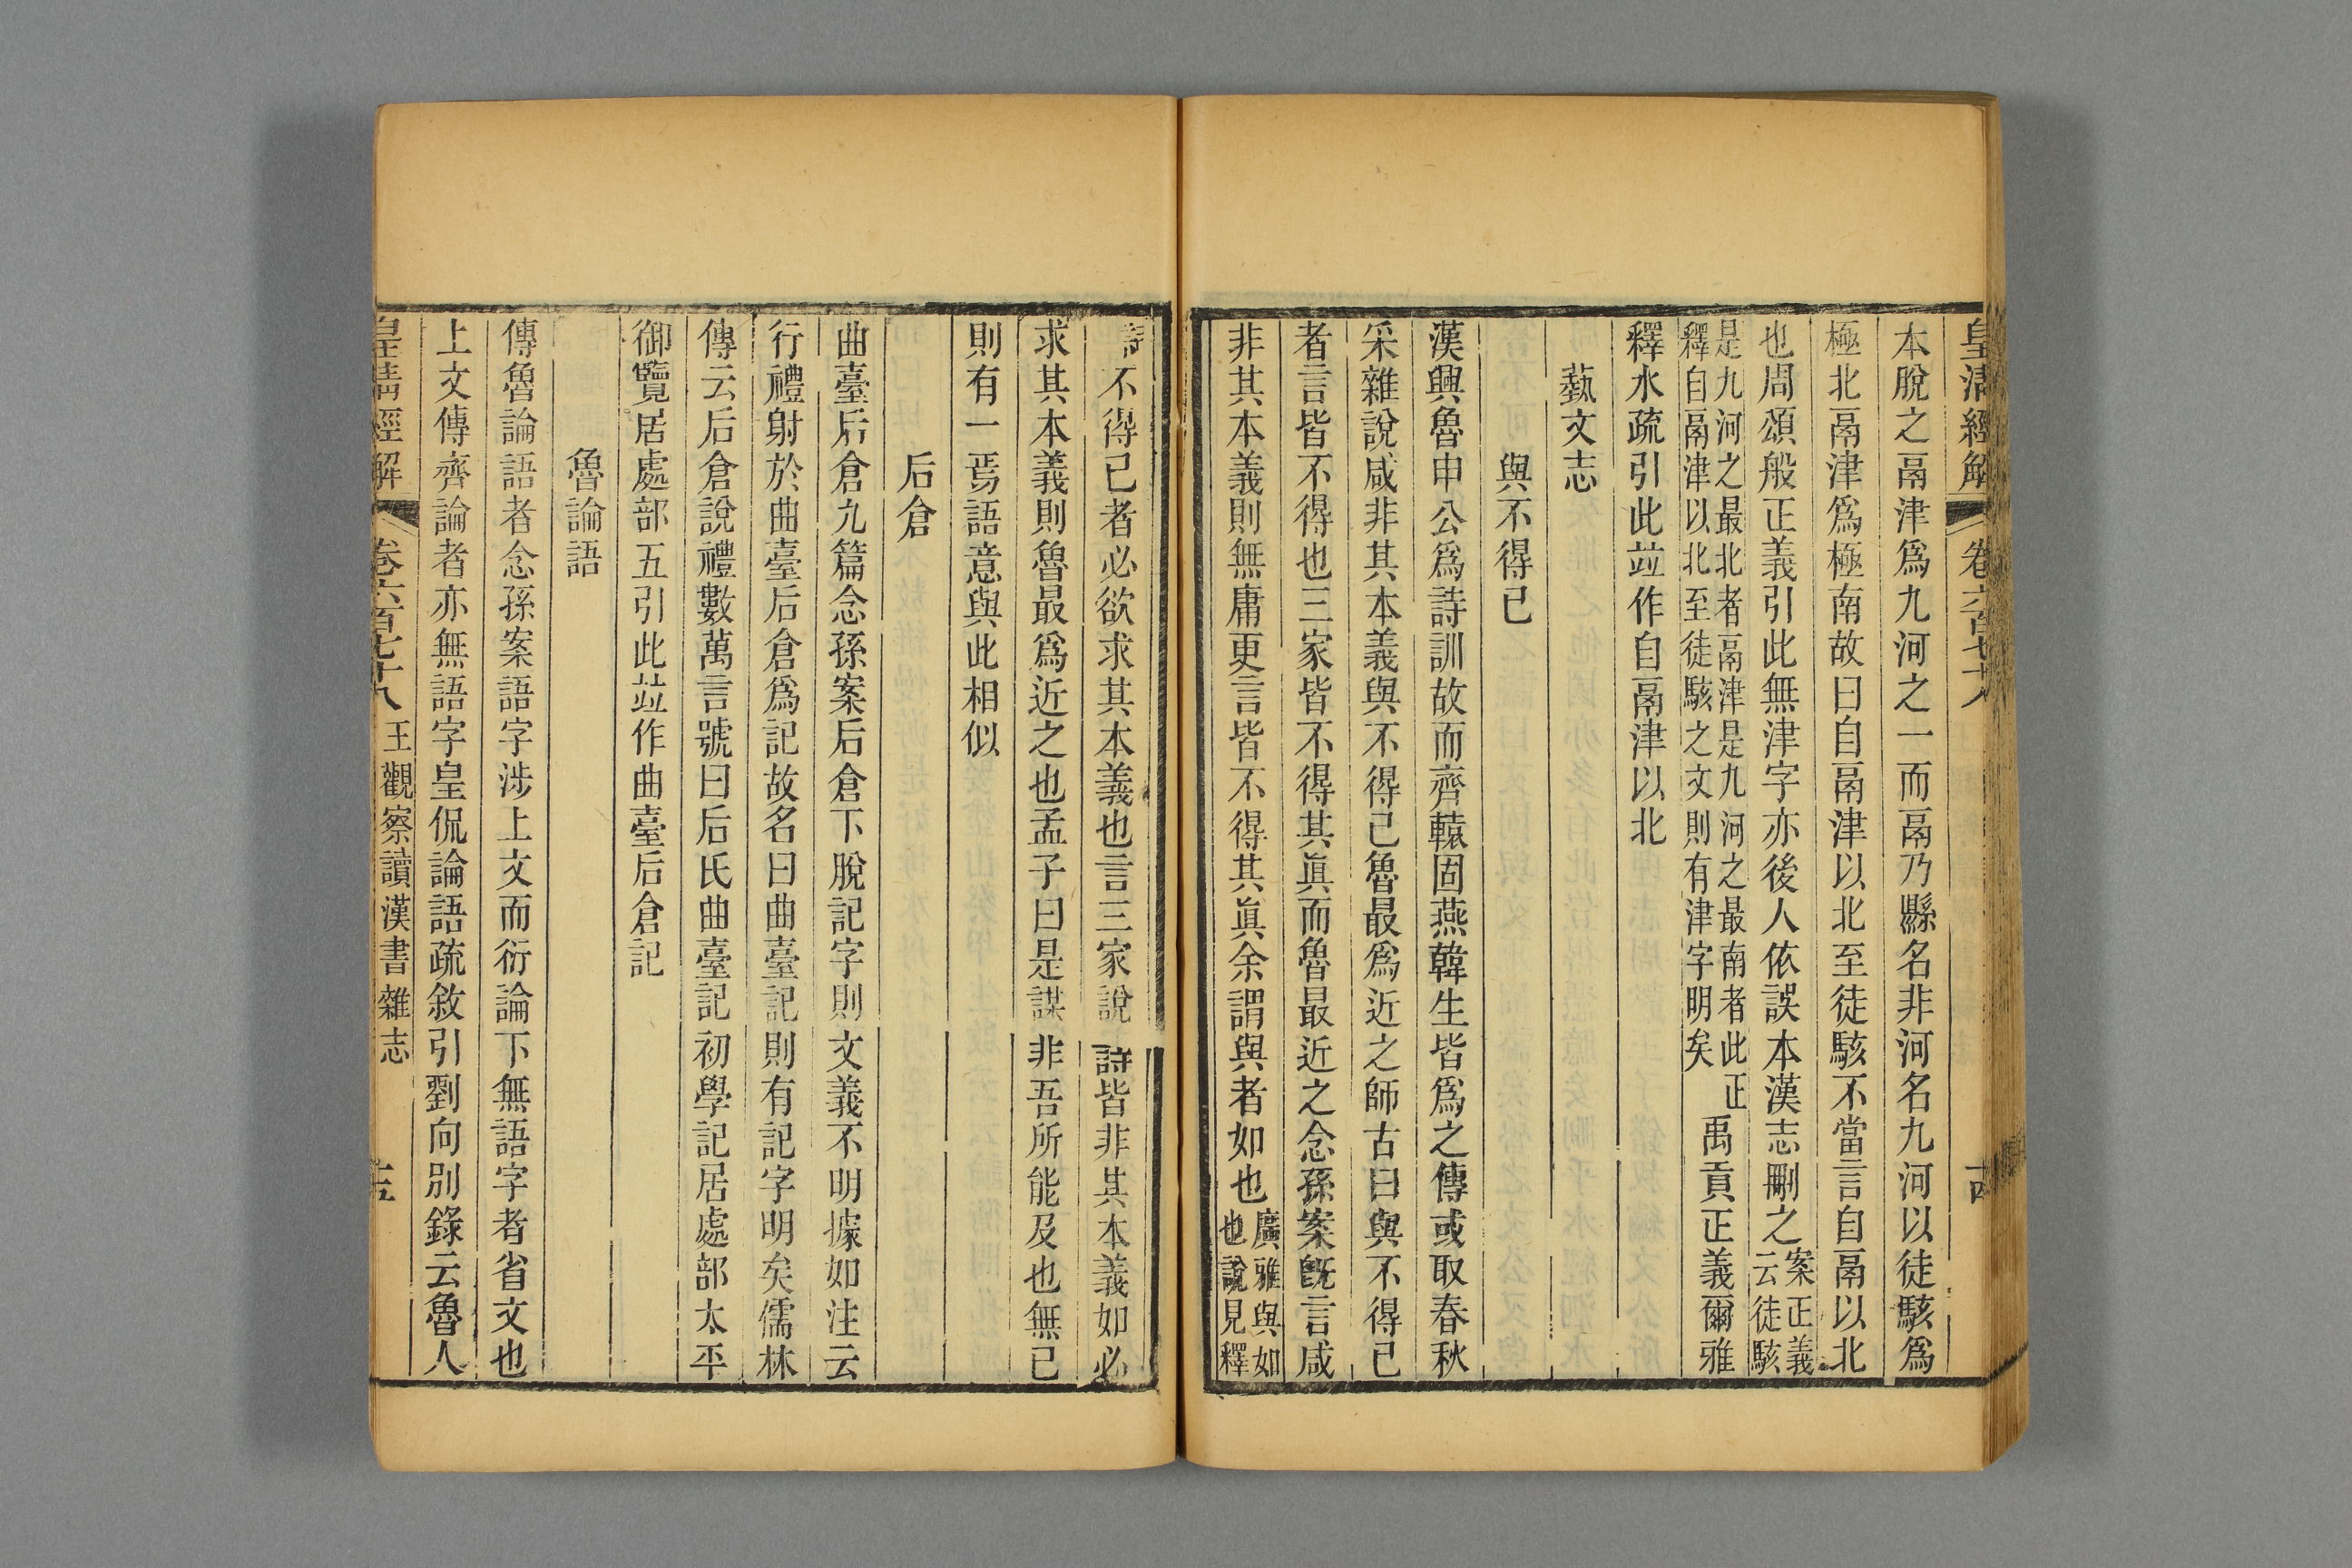 皇清經解 卷六百七十八 十四
本脫之鬲津爲九河之一而鬲乃縣名非河名九河以徒駭爲
極北鬲津爲極南故曰自鬲津以北至徒駭不當言自鬲以北
也周頌般正義引此無津字亦後人依誤本漢志刪之案正義云徒駭
是九河之最北者鬲津是九河之最南者此正釋自鬲津以北至徒駭之文則有津字明矣禹貢正義爾雅
釋水疏引此竝作自鬲津以北
藝文志
與不得已
漢興魯申公爲詩訓故而齊轅固燕韓生皆爲之傳或取春秋
采雜說咸非其本義與不得已魯最爲近之師古曰與不得已
者言皆不得也三家皆不得其眞而魯最近之念孫案旣言咸
非其本義則無庸更言皆不得其眞余謂與者如也廣雅與如也說見釋
詩不得已者必欲求其本義也言三家說詩皆非其本義如必
求其本義則魯最爲近之也孟子曰是謀非吾所能及也無已
則有一焉語意與此相似
后倉
曲臺后倉九篇念孫案后倉下脫記字則文義不明據如注云
行禮射於曲臺后倉爲記故名曰曲臺記則有記字明矣儒林
傳云后倉說禮數萬言號曰后氏曲臺記初學記居處部太平
御覽居處部五引此竝作曲臺后倉記
魯論語
傳魯論語者念孫案語字涉上文而衍論下無語字者省文也
上文傳齊論者亦無語字皇侃論語疏敘引劉向別錄云魯人
皇清經解 卷六百七十八 王觀察讀漢書雜志 十五